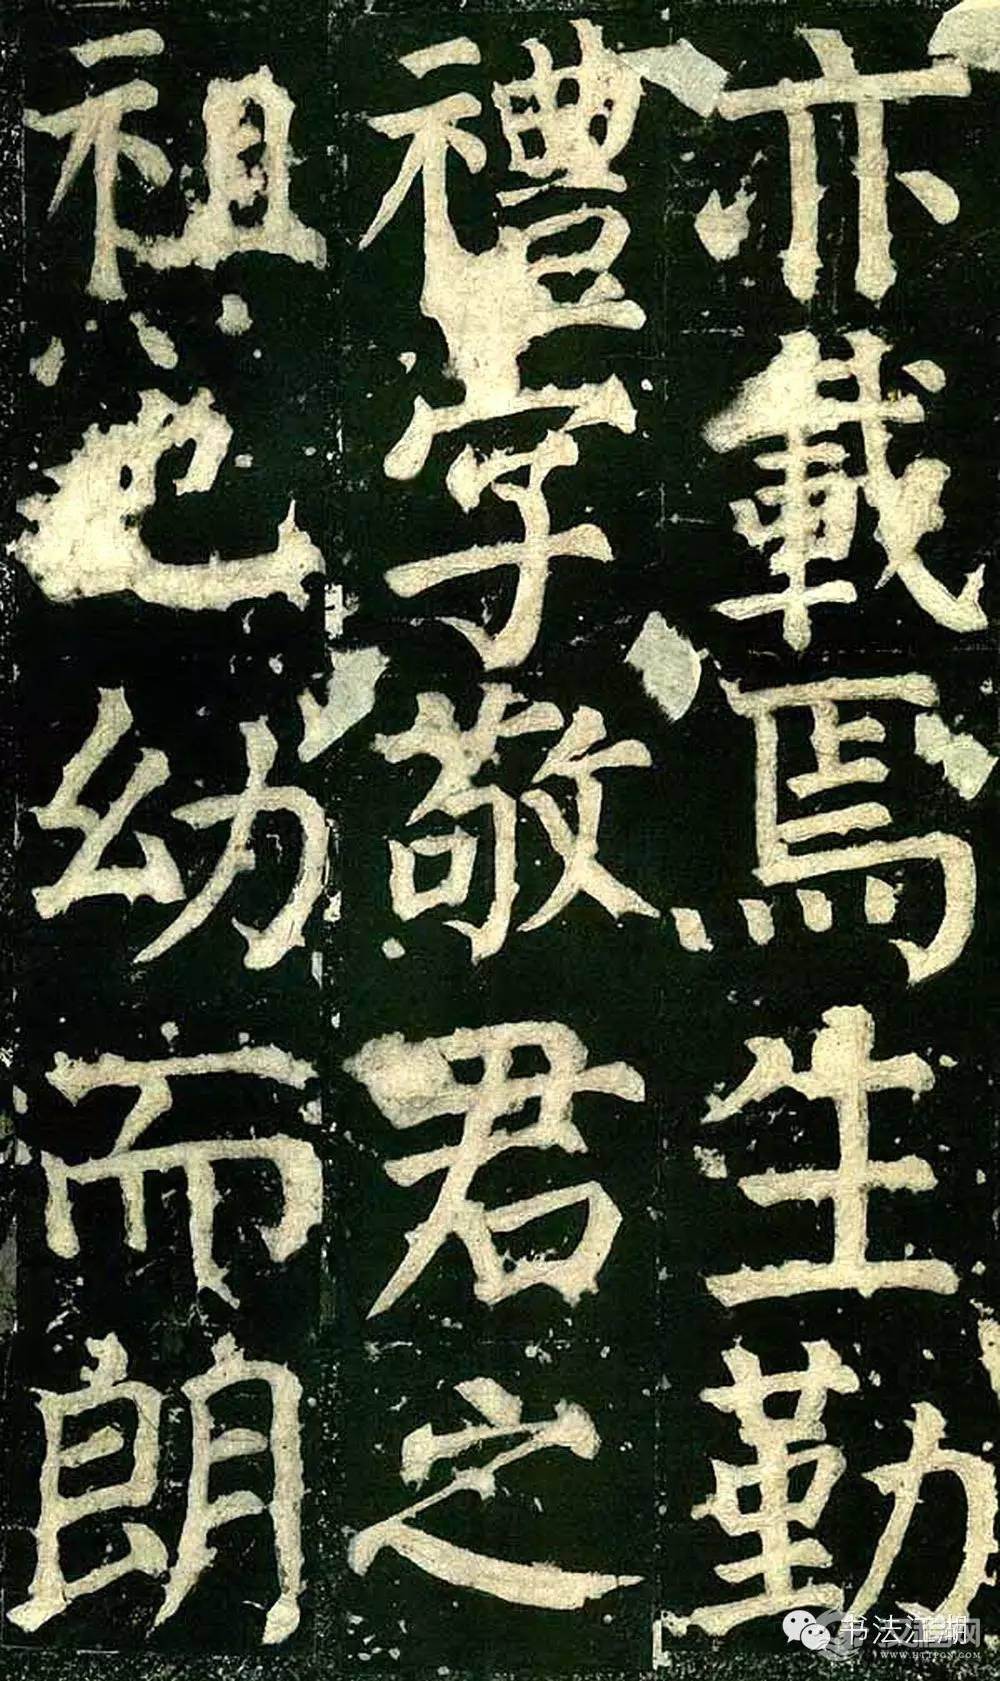 亦載焉生勤
禮字敬君之
祖也幼而朗
书法江湖
WWW.HTTPCN.COM